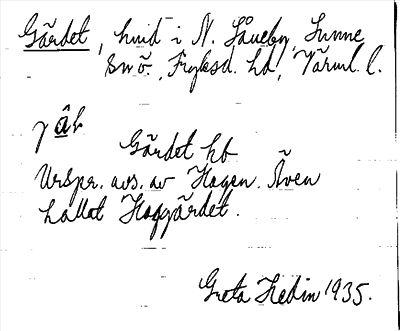 Gärdet, hmd i N. Låneby, Sunne
snö. Fryksd. hd, Värml. l.
Gärdet hb
Urspr. avs. av Hagen. Även
kallat Haggärdet.
Greta Hedin 1935.